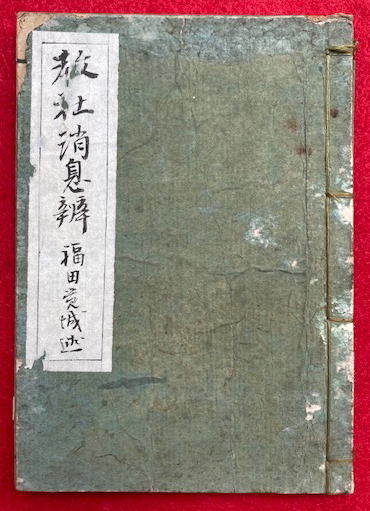 教社消息辨 福田覚城述